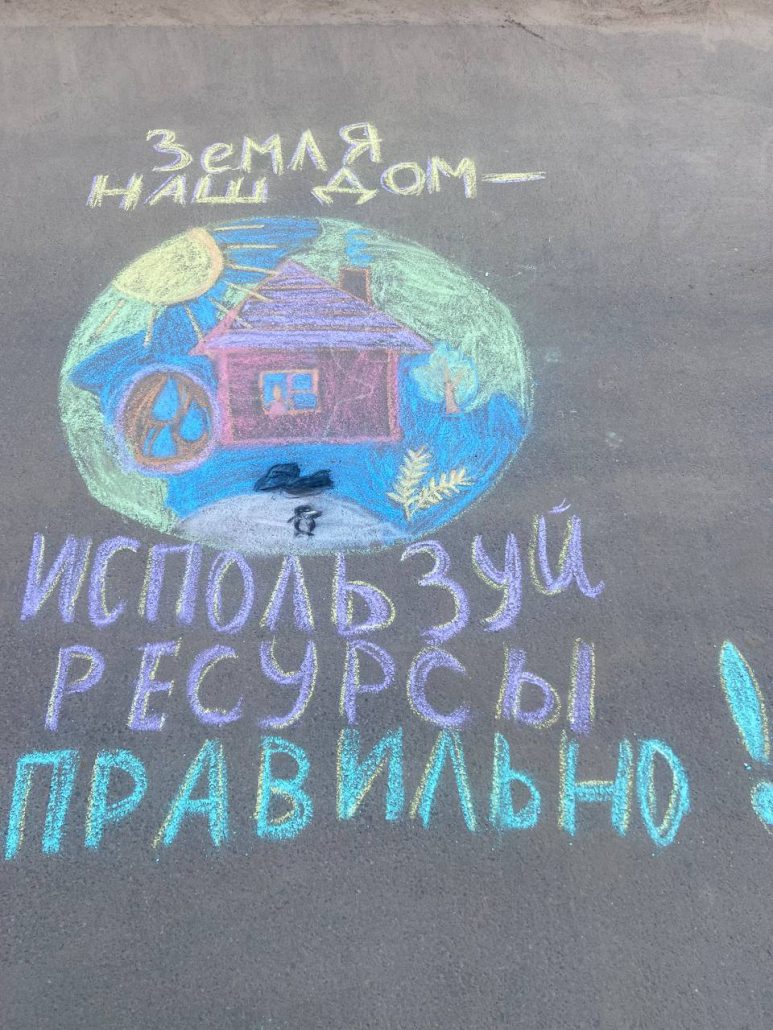 Земля
НАШ ДОМ—
ИСПОЛЬЗУЙ
РЕСУРСЫ
ПРАВИЛЬНО!